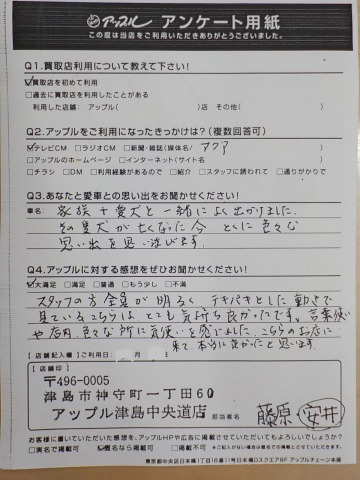 アップル アンケート用紙
この度は当店をご利用いただきありがとうございました。
Q1.買取店利用について教えて下さい!
☑買取店を初めて利用
□過去に買取店を利用したことがある
利用した店舗: アップル( )店 その他( )
Q2.アップルをご利用になったきっかけは?(複数回答可)
☑テレビCM □ラジオCM □新聞・雑誌(媒体名/ アクア )
□アップルのホームページ □インターネット(サイト名 )
□チラシ □DM □利用経験があるので □紹介 □スタッフに誘われて □通りがかりで
Q3.あなたと愛車との思い出をお聞かせください!
車名: 家族+愛犬と一緒によく出かけました。
その愛犬が亡くなった今、とくに色々な
思い出を思い浮びます。
Q4.アップルに対する感想をぜひお聞かせください!
☑大満足 □満足 □普通 □もう少し □不満
スタッフの方全員が明るく テキパキとした動きで
見ているこちらは とても気持ち良かったです。言葉使い
や店内、色々な所に気使いを感じました。こちらのお店に
来て、本当に良かったと思います。
【店舗記入欄】ご利用日: 月 日
【店舗印】
〒496-0005
津島市神守町一丁目60
アップル津島中央道店
担当者名 藤原・安井
お客様に書いていただいた感想を、アップルHPや広告に掲載させていただいてもよろしいでしょうか?
□実名で掲載可 ☑匿名なら掲載可 □掲載不可 ※ご記入がない場合は匿名で掲載させていただく場合がございます。
東京都中央区日本橋1丁目16番11号日本橋Dスクエア8F アップルチェーン本部